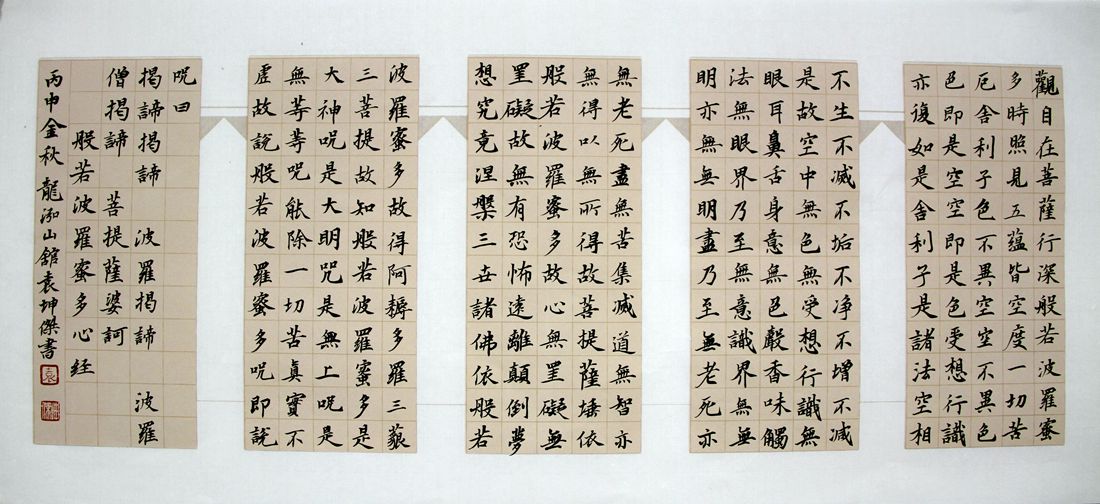 觀自在菩薩行深般若波羅蜜
多時照見五蘊皆空度一切苦
厄舍利子色不異空空不異色
色即是空空即是色受想行識
亦復如是舍利子是諸法空相
不生不減不垢不净不增不減
是故空中無色無受想行識無
眼耳鼻舌身意無色聲香味觸
法無眼界乃至無意識界無無
明亦無無明盡乃至無老死亦
無老死盡無苦集減道無智亦
無得以無所得故菩提薩埵依
般若波羅蜜多故心無罣礙無
罣礙故無有恐怖遠離顛倒夢
想究竟涅槃三世諸佛依般若
波羅蜜多故得阿耨多羅三藐
三菩提故知般若波羅蜜多是
大神咒是大明咒是無上咒是
無等等咒能除一切苦真實不
虛故說般若波羅蜜多咒即說
咒曰
揭諦揭諦 波羅揭諦 波羅
僧揭諦 菩提薩婆訶
般若波羅蜜多心经
丙申金秋 龍泓山館袁坤傑書
袁